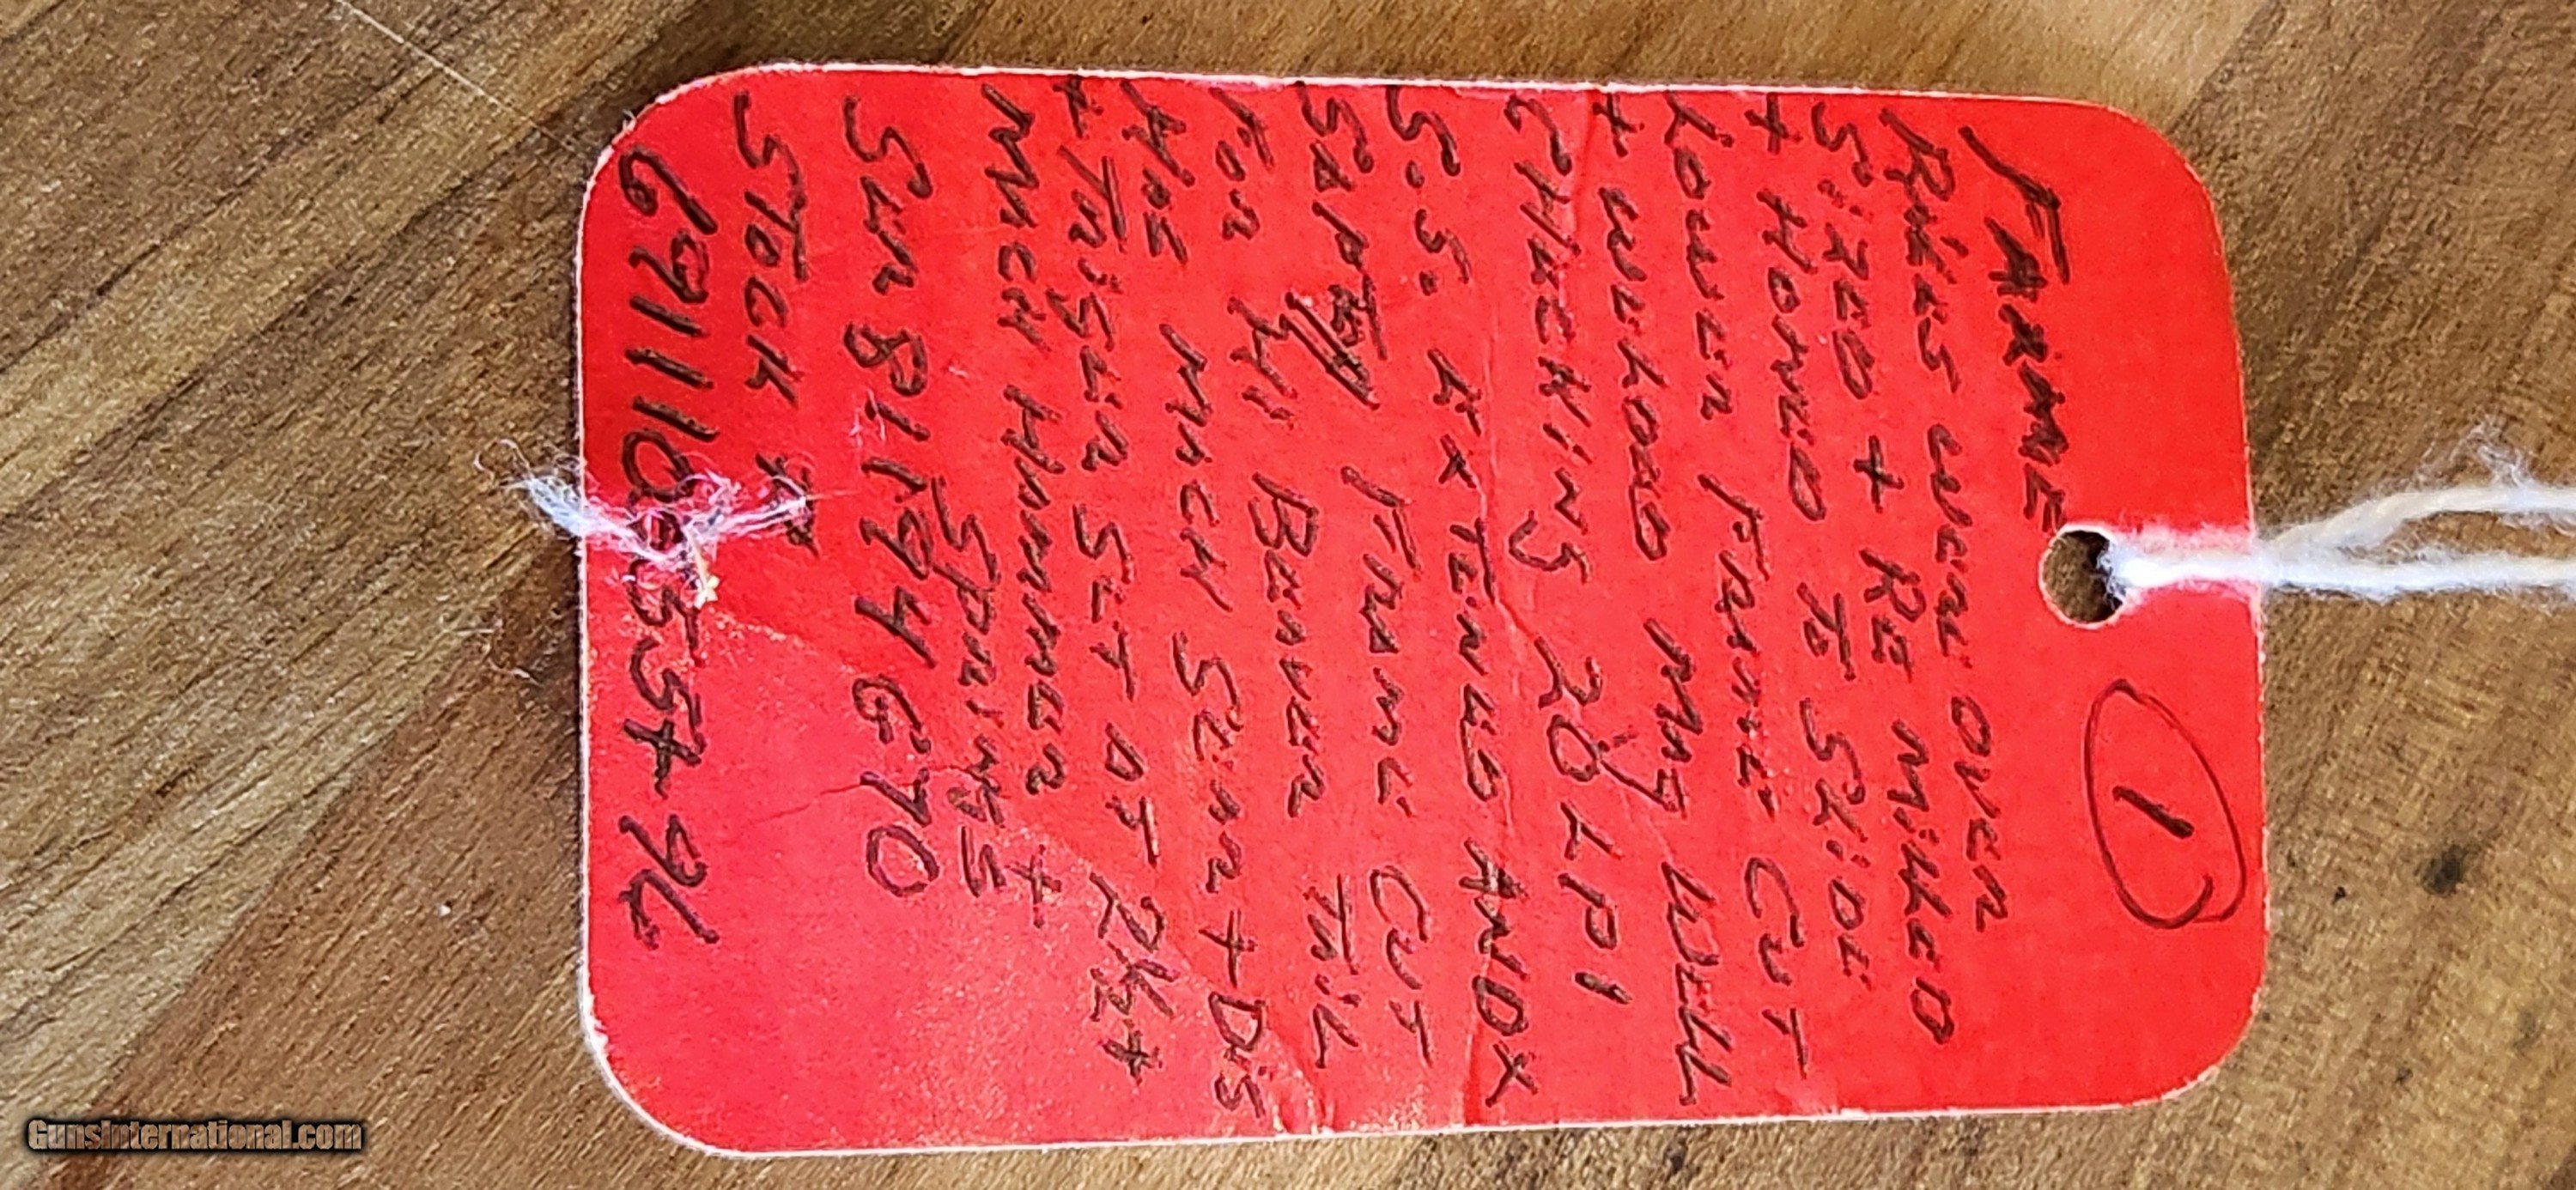 ①
FARME
RAiLS WERE OVER
SiZED + RE MiLLED
+ HONED To SLiDE
LOWER FRAME CUT
+ WELDED MAG WELL
CHECKING 20 LPI
S.S. EXTENED AMDX
SAFETY FRAME CUT
FOR Hi BEAVER TAiL
HAS MCH SEAR + DiS
+ TRiGER SET AT 2½ +
MCH HAMMER +
SPRiNGS
SER 81194G70
STOCK #
GunsInternational.com